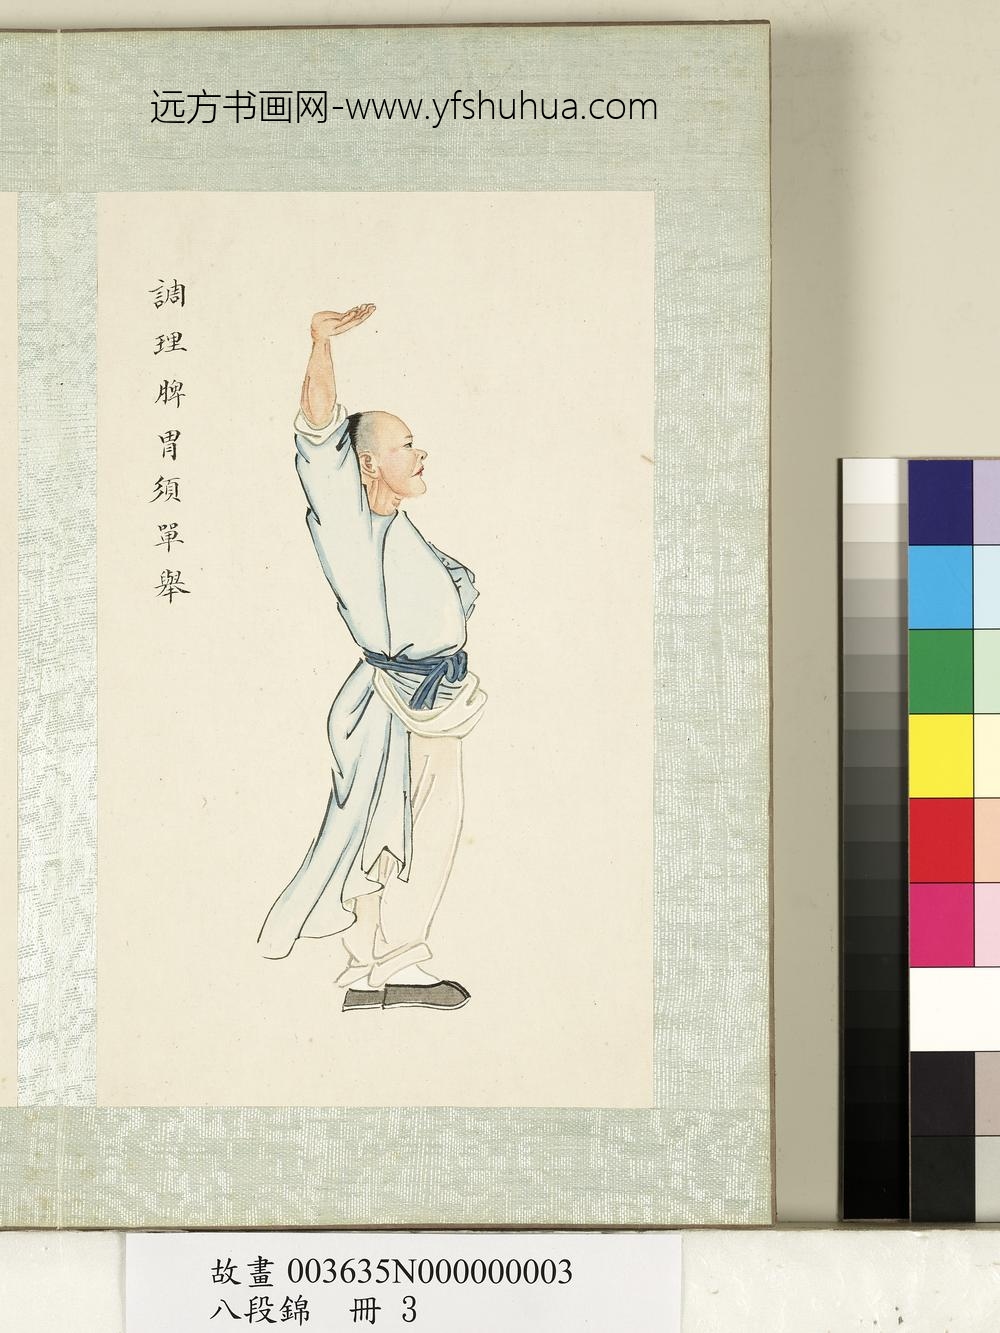 远方书画网-www.yfshuhua.com
調理脾胃須單舉
故畫 003635N000000003
八段錦 冊 3